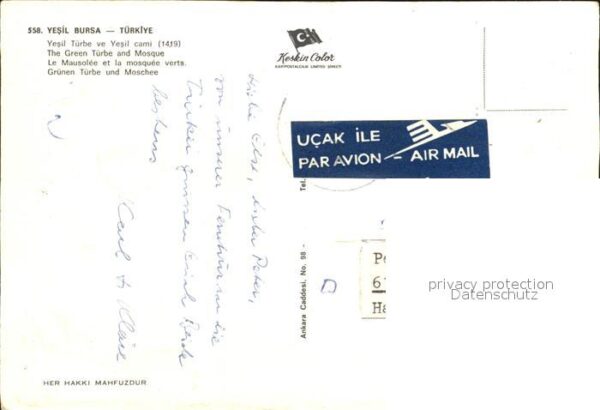 558. YEŞİL BURSA — TÜRKİYE
Yeşil Türbe ve Yeşil cami (1419)
The Green Türbe and Mosque
Le Mausolée et la mosquée verts.
Grünen Türbe und Moschee
Keskin Color
KARTPOSTALCILIK LIMITED ŞİRKETİ
UÇAK İLE
PAR AVION - AIR MAIL
Liebe Else, lieber Peter,
von unserer
Türkei grüssen Euch
bestens
Karl +
Ankara Caddesi, No. 98 -
Tel.
Pe
6
Ha
privacy protection
Datenschutz
HER HAKKI MAHFUZDUR